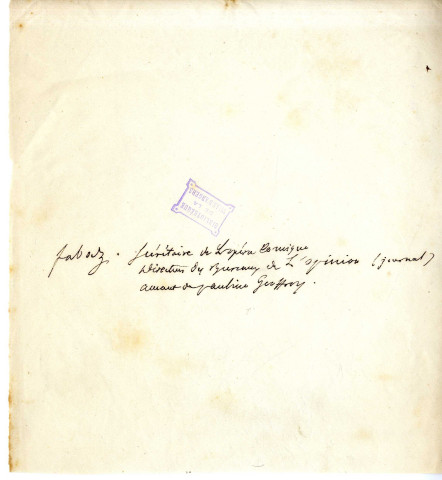 Secrétaire de L'opéra Comique
Directeur des Bureaux de L'opinion (journal)
amant de pauline Geoffroy.